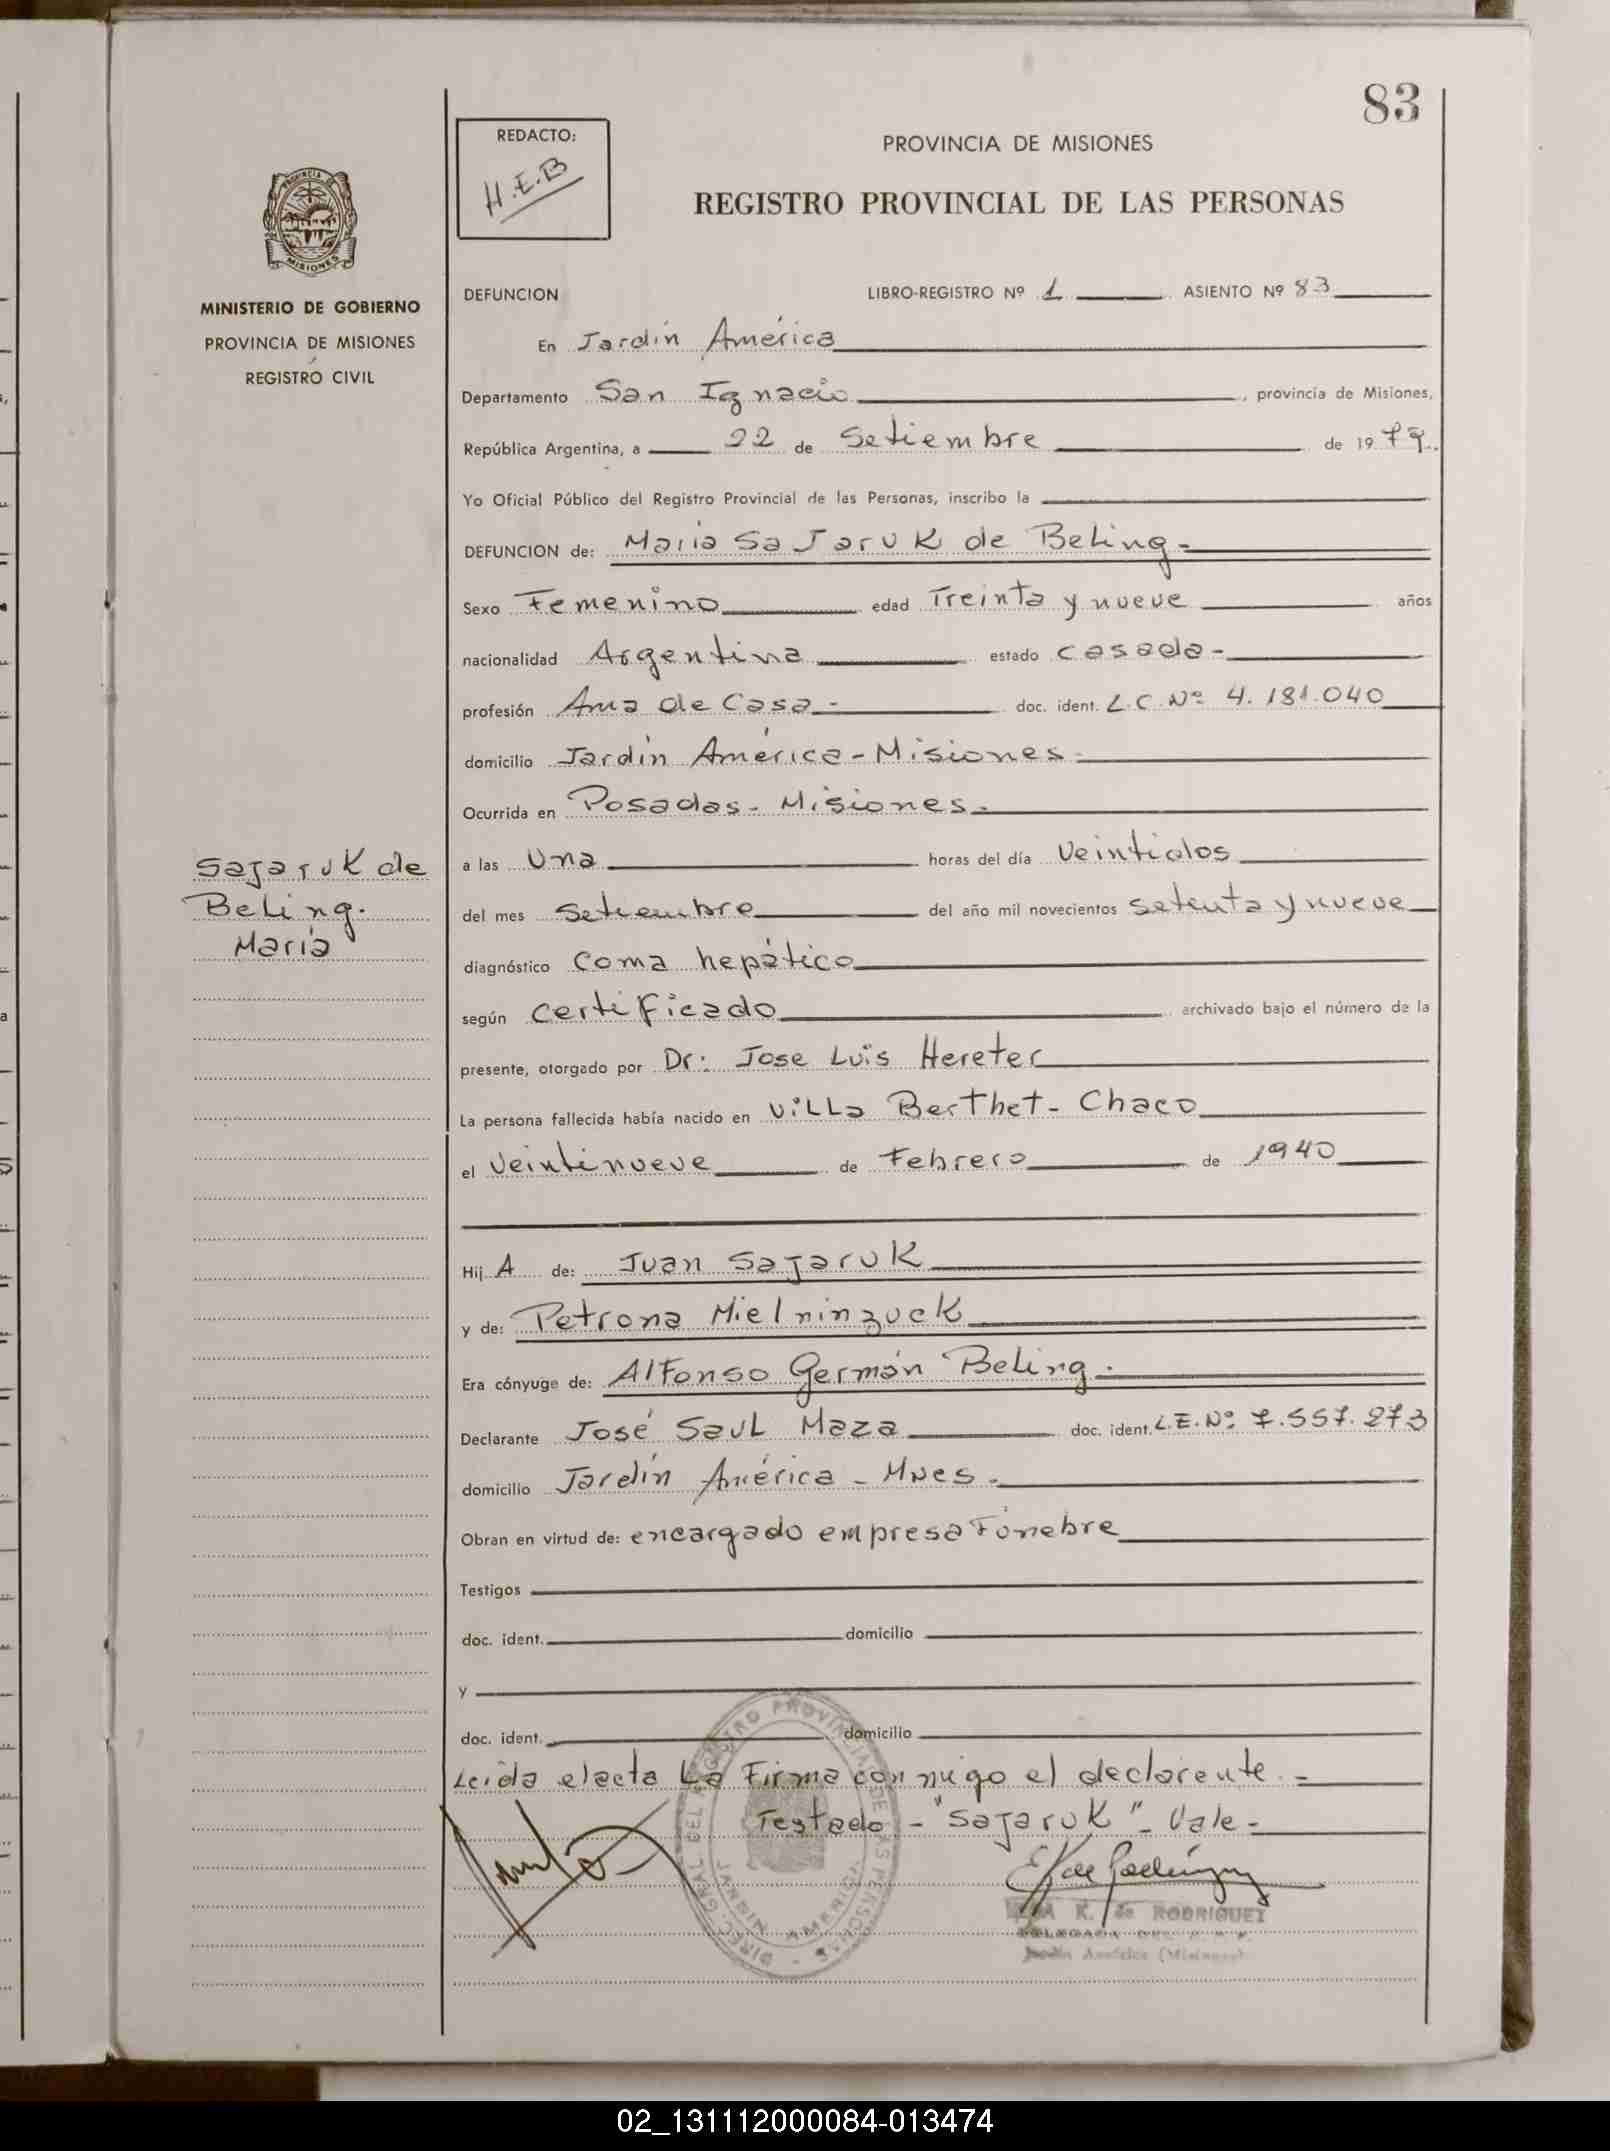 83
REDACTO:
H.E.B
PROVINCIA DE MISIONES
REGISTRO PROVINCIAL DE LAS PERSONAS
PROVINCIA DE
MISIONES
MINISTERIO DE GOBIERNO
PROVINCIA DE MISIONES
REGISTRO CIVIL
DEFUNCION LIBRO-REGISTRO Nº 1 ASIENTO Nº 83
En Jardín América
Departamento San Ignacio, provincia de Misiones,
República Argentina, a 22 de Setiembre de 1979.
Yo Oficial Público del Registro Provincial de las Personas, inscribo la
DEFUNCION de: María SaJaruK de Beling-
Sexo Femenino edad Treinta y nueve años
nacionalidad Argentina estado Casada-
profesión Ama de Casa- doc. ident. L.C.Nº 4.181.040
domicilio Jardín América-Misiones-
Ocurrida en Posadas-Misiones-
a las Una horas del día Veintidos
del mes Setiembre del año mil novecientos setenta y nueve
diagnóstico Coma hepático
según certificado archivado bajo el número de la
presente, otorgado por Dr: Jose Luis Hereter
La persona fallecida había nacido en Villa Berthet-Chaco
el Veintinueve de Febrero de 1940
Hij A de: Juan SaJaruK
y de: Petrona Mielninzuck
Era cónyuge de: Alfonso Germán Beling.
Declarante José Saul Maza doc. ident. L.E.Nº 7.557.273
domicilio Jardín América-Mnes.
Obran en virtud de: encargado empresa Fúnebre
Testigos
doc. ident. domicilio
y
doc. ident. domicilio
Leída elacta La Firma con migo el declarente.-
Testado-"SaJaruK"-Vale-
SaJaruK de
Beling.
María
DIREC. GRAL. DEL REGISTRO PROVINCIAL DE LAS PERSONAS
JARDIN AMERICA
K. de RODRIGUEZ
DELEGADA
Jardín América (Misiones)
02_131112000084-013474